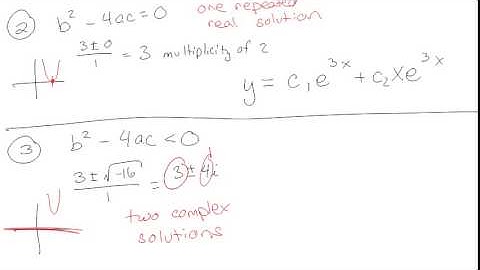 ② b² - 4ac = 0 one repeated
real solution
3 ± 0 / 1 = 3 multiplicity of 2
y = c₁e^3x + c₂xe^3x
③ b² - 4ac < 0
3 ± √-16 / 1 = 3 ± 4i
two complex
solutions